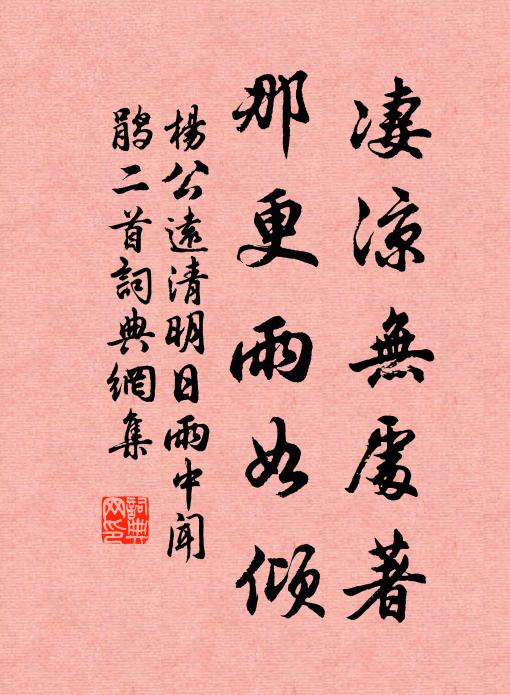 凄涼無處著
那更雨如傾
楊公遠清明日雨中聞
鹃二首詞典網集
詞典网印